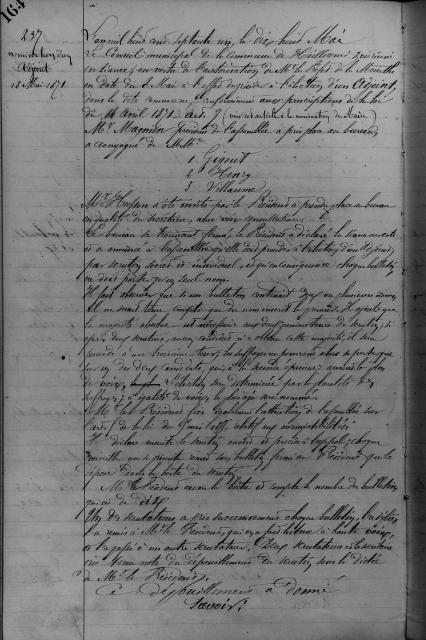 164
237
nomination d'un
Adjoint
18 Mai 1871
L'an mil huit cent septante un, le dix huit Mai
Le Conseil municipal de la Commune de
en séance, en vertu de l'autorisation de Mr le Préfet de la Meurthe
en date du Mai à l'effet de procéder à l'élection d'un Adjoint,
conformément aux prescriptions de la loi
du 14 Avril 1871 art. 9 (voir cet article à la nomination du Maire)
Mr Président de l'assemblée a pris place au bureau
accompagné de MM.
1 Gigout
2 Henry
3 Villaume
Mr Husson a été invité par le Président à prendre place au bureau
en qualité de secrétaire, avec voix consultative.
Le bureau se trouvant formé, le Président a déclaré la séance ouverte
et a annoncé à l'assemblée qu'elle doit procéder à l'élection d'un Adjoint,
par scrutin secret et individuel, et qu'en conséquence chaque bulletin
ne doit porter qu'un seul nom.
Il fait observer que si un bulletin contenait deux ou plusieurs noms,
il ne serait tenu compte que du nom inscrit le premier. Il ajoute que
la majorité absolue est nécessaire aux deux premiers tours de scrutin; si
après deux scrutins, aucun candidat n'a obtenu cette majorité, il sera
procédé à un troisième tour; les suffrages ne pourront alors se porter que
sur un des deux candidats, qui, à la seconde épreuve, auront le plus
de voix, l'élection sera déterminée par la pluralité des
suffrages; à égalité de voix, le plus âgé sera nommé.
Mr le Président fixe également l'attention de l'assemblée sur
l'art. de la loi du 5 mai relatif aux incompatibilités
Il déclare ensuite le scrutin ouvert et procède à l'appel; chaque
conseiller remis son bulletin fermé au Président qui le
dépose dans la boîte du scrutin
Mr le Président ouvre la boîte et compte le nombre des bulletins
qui est de dix
Un des scrutateurs a pris successivement chaque bulletin, l'a déplié,
l'a remis à Mr le Président, qui en a fait lecture à haute voix
et l'a passé à un autre scrutateur. Deux scrutateurs et le secrétaire
ont tenu note du dépouillement du scrutin sous la dictée
de Mr le Président.
Ce dépouillement a donné
Savoir: